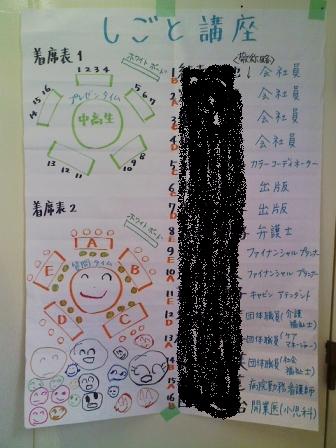 しごと講座
着席表1
ホワイトボード
1 2 3 4
プレゼンタイム
中高生
14 15 16
5, 6, 7
13 12 11
10 9 8
着席表2
ホワイトボード
A
質問タイム
E
B
D
C
<敬称略>
1 B 会社員
2 A 会社員
3 会社員
4 D 会社員
5 E カラーコーディネーター
6 E 出版
7 D 出版
8 E 弁護士
9 E ファイナンシャルプランナー
10 A ファイナンシャルプランナー
11 E キャビンアテンダント
12 D 団体職員(介護福祉士)
13 D 団体職員(ケアマネージャー)
14 B 団体職員(社会福祉士)
15 A 病院勤務看護師
16 B 開業医(小児科)